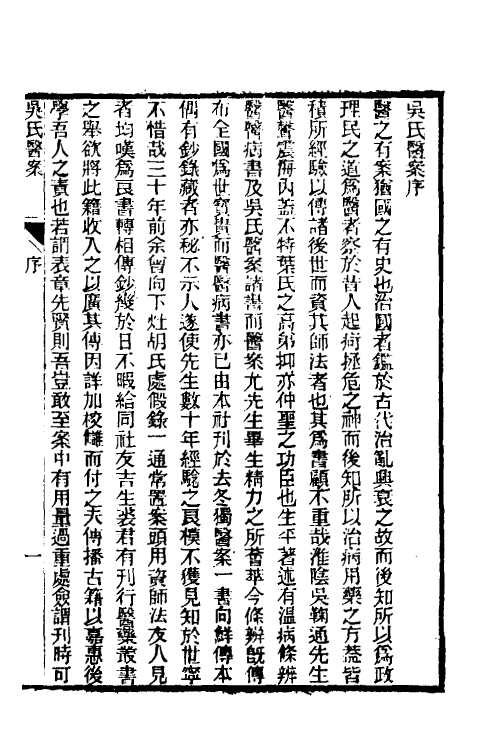 吳氏醫案序
醫之有案猶國之有史也治國者鑑於古代治亂興衰之故而後知所以爲政
理民之道爲醫者察於昔人起痾拯危之神而後知所以治病用藥之方蓋皆
積所經驗以傳諸後世而資其師法者也其爲書顧不重哉淮陰吳鞠通先生
醫譽震海內蓋不特葉氏之高弟抑亦仲聖之功臣也生平著述有溫病條辨
醫醫病書及吳氏醫案諸書而醫案尤先生畢生精力之所薈萃今條辨旣傳
布全國爲世寶貴而醫醫病書亦已由本社刊於去冬獨醫案一書向鮮傳本
偶有鈔錄藏者亦秘不示人遂使先生數十年經驗之良模不獲見知於世寧
不惜哉三十年前余曾向下灶胡氏處假錄一通常置案頭用資師法友人見
者均嘆爲良書轉相傳鈔幾於日不暇給同社友吉生裘君有刊行醫藥叢書
之舉欲將此籍收入之以廣其傳因詳加校讎而付之夫傳播古籍以嘉惠後
學吾人之責也若謂表章先賢則吾豈敢至案中有用量過重處僉謂刊時可
吳氏醫案
序
一